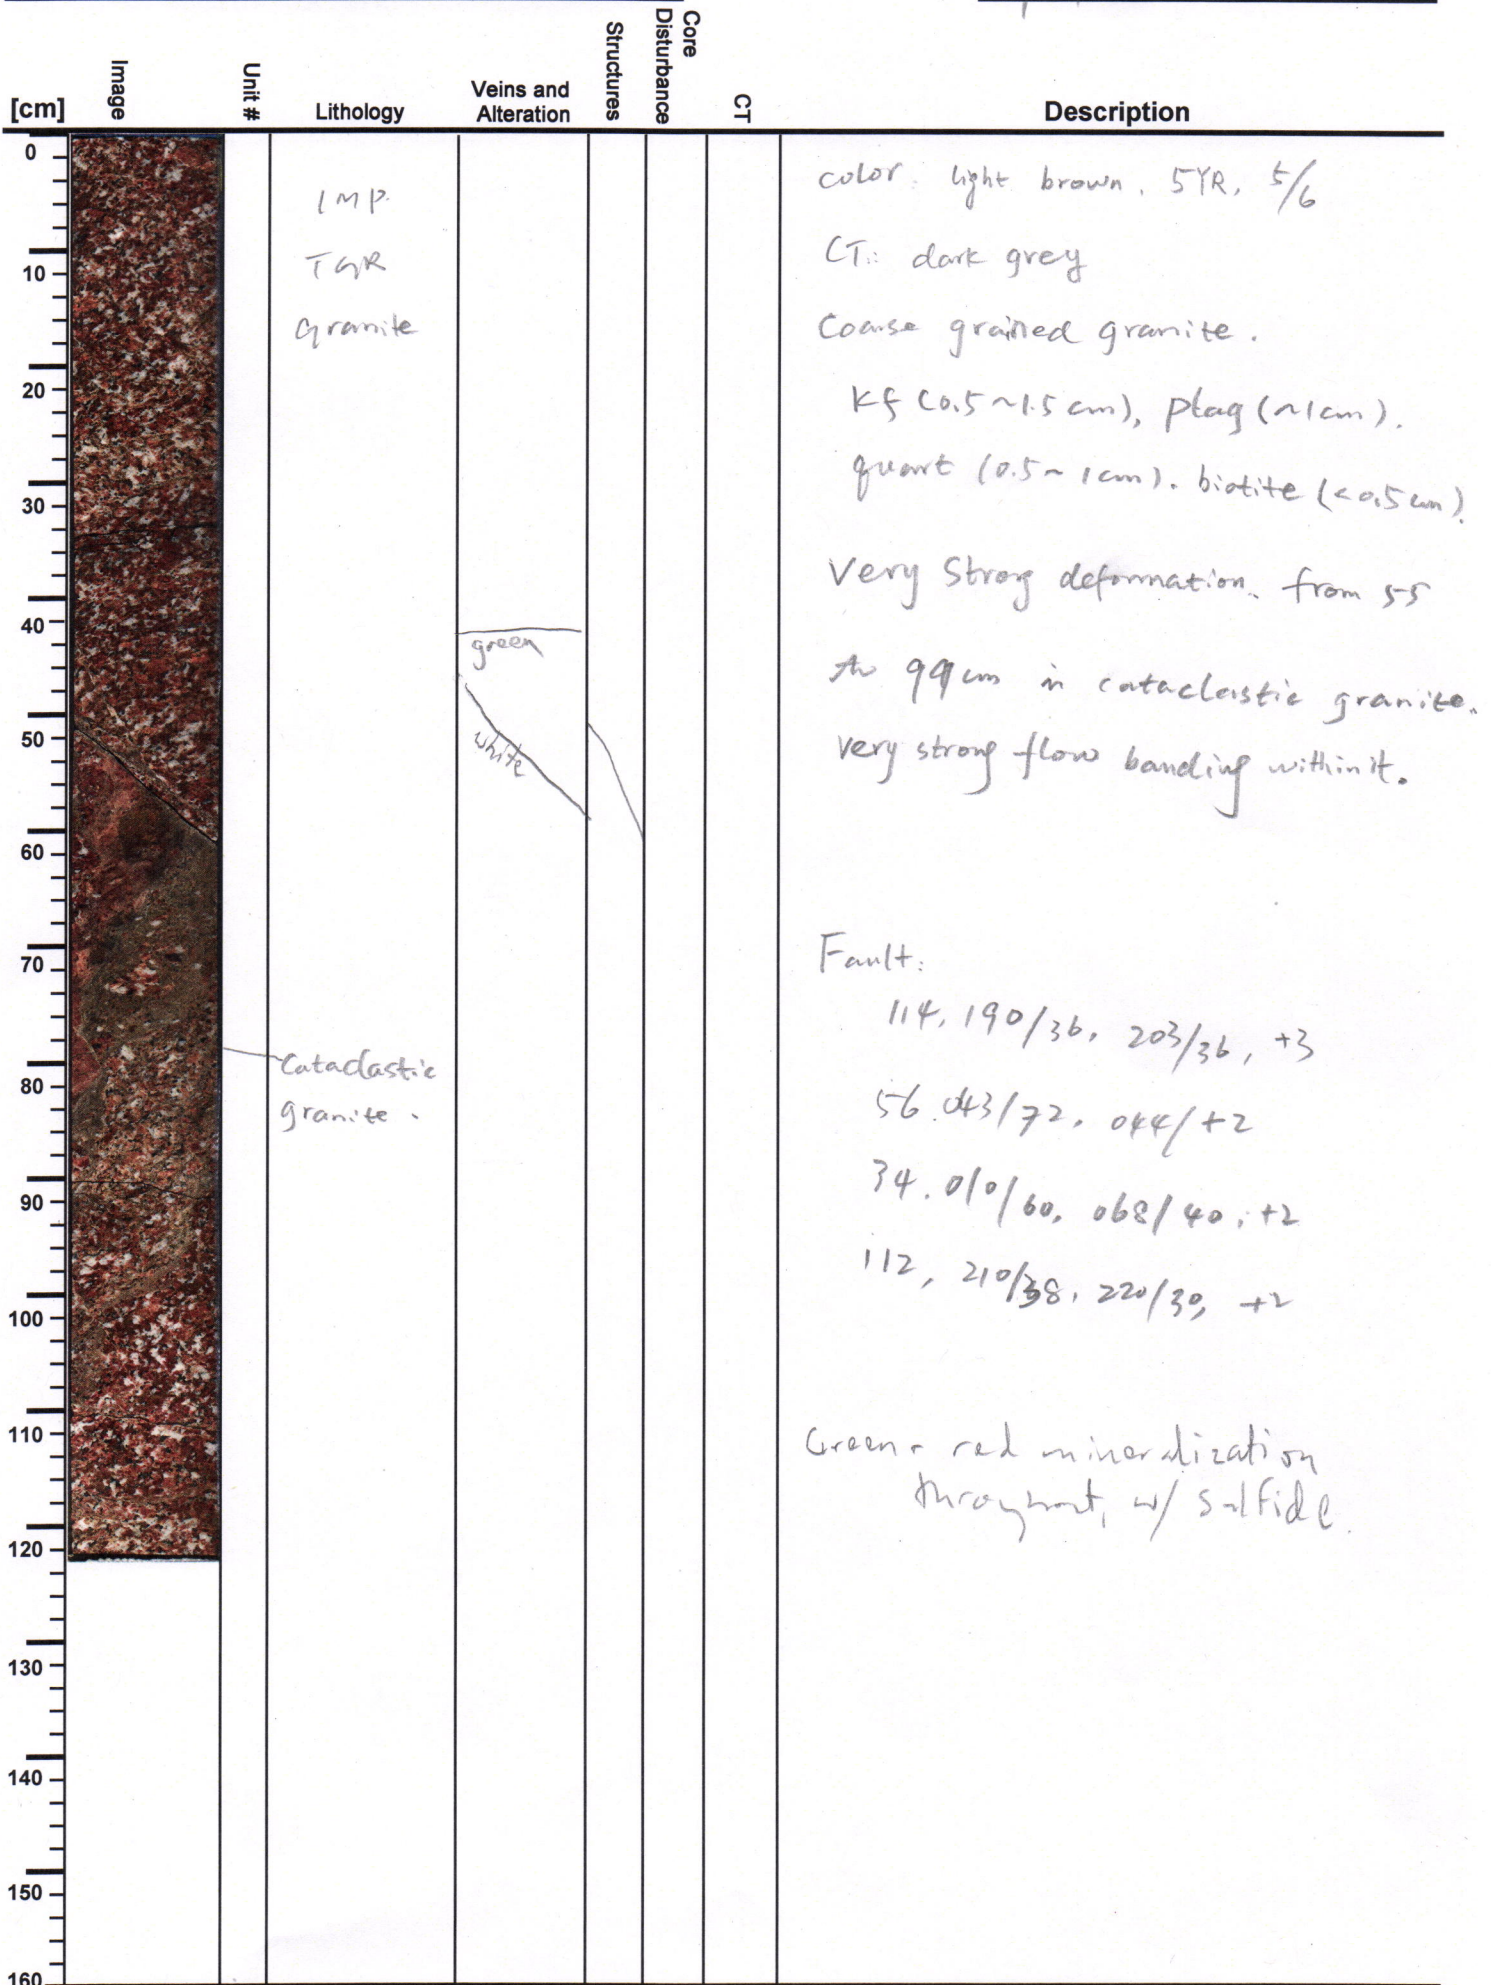 [cm]
Image
Unit #
Lithology
Veins and
Alteration
Structures
Core
Disturbance
CT
Description
0
10
20
30
40
50
60
70
80
90
100
110
120
130
140
150
160
IMP.
TGR
Granite
Cataclastic
granite.
green
white
color: light brown. 5YR, 5/6
CT: dark grey
Coarse grained granite.
Kf (0.5~1.5 cm), plag (~1cm).
quart (0.5~1cm). biotite (<0.5cm).
Very Strong deformation. from 55
to 99cm in cataclastic granite.
very strong flow banding within it.
Fault:
114, 190/36, 203/36, +3
56. 043/72. 044/ +2
34. 010/60, 068/40, +2
112, 210/38, 220/30, +2
Green + red mineralization
throughout, w/ Sulfide.